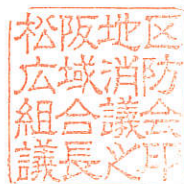 松阪地区
広域消防
組合議会
議長之印